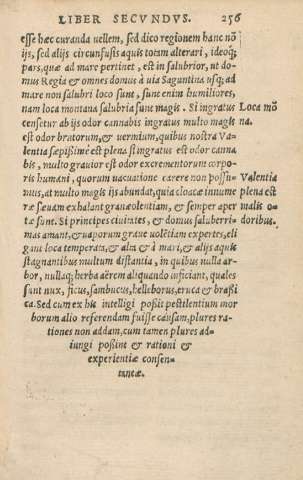 LIBER SECVNDVS. 256
esse hæc curanda uellem, sed dico regionem hanc nõ
ijs, sed alijs circunfusis aquis totam alterari, ideoq;
pars, quæ ad mare pertinet, est in salubrior, ut do-
mus Regia & omnes domus à uia Saguntina usq; ad
mare non salubri loco sunt, sunt enim humiliores,
nam loca montana salubria sunt magis. Si ingratus Loca mõ
censetur ab ijs odor cannabis ingratus multo magis na.
est odor bratorum, & uermium, quibus nostra Va-
lentia sæpissimè est plena si ingratus est odor canna
bis, multo grauior est odor excrementorum corpo-
ris humani, quorum uacuatione carere non possu- Valentia
mus, at multo magis ijs abundat, quia cloacæ innume plena est
ræ sæuam exhalant graueolentiam, & semper aper malis o-
tæ sunt. Si principes ciuitates, & domus saluberri- doribus.
mas amant, & uaporum graue volētiam expertes, eli
gant loca temperata, & alta & à mari, & alijs aquis
stagnantibus multum distantia, in quibus nulla ar-
bor, nullaq; herba aërem aliquando inficiant, quales
sunt nux, ficus, sambucus, helleborus, eruca & braßi
ca. Sed cum ex his intelligi poßit pestilentium mor
borum alio referendam fuisse causam, plures ra-
tiones non addam, cum tamen plures ad-
iungi poßint & rationi &
experientiæ consen-
taneæ.